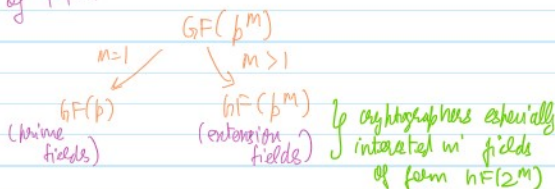 GF(p^m)
m=1 m>1
GF(p) GF(p^m)
(prime fields) (extension fields)
} cryptographers especially
interested in fields
of form GF(2^m)